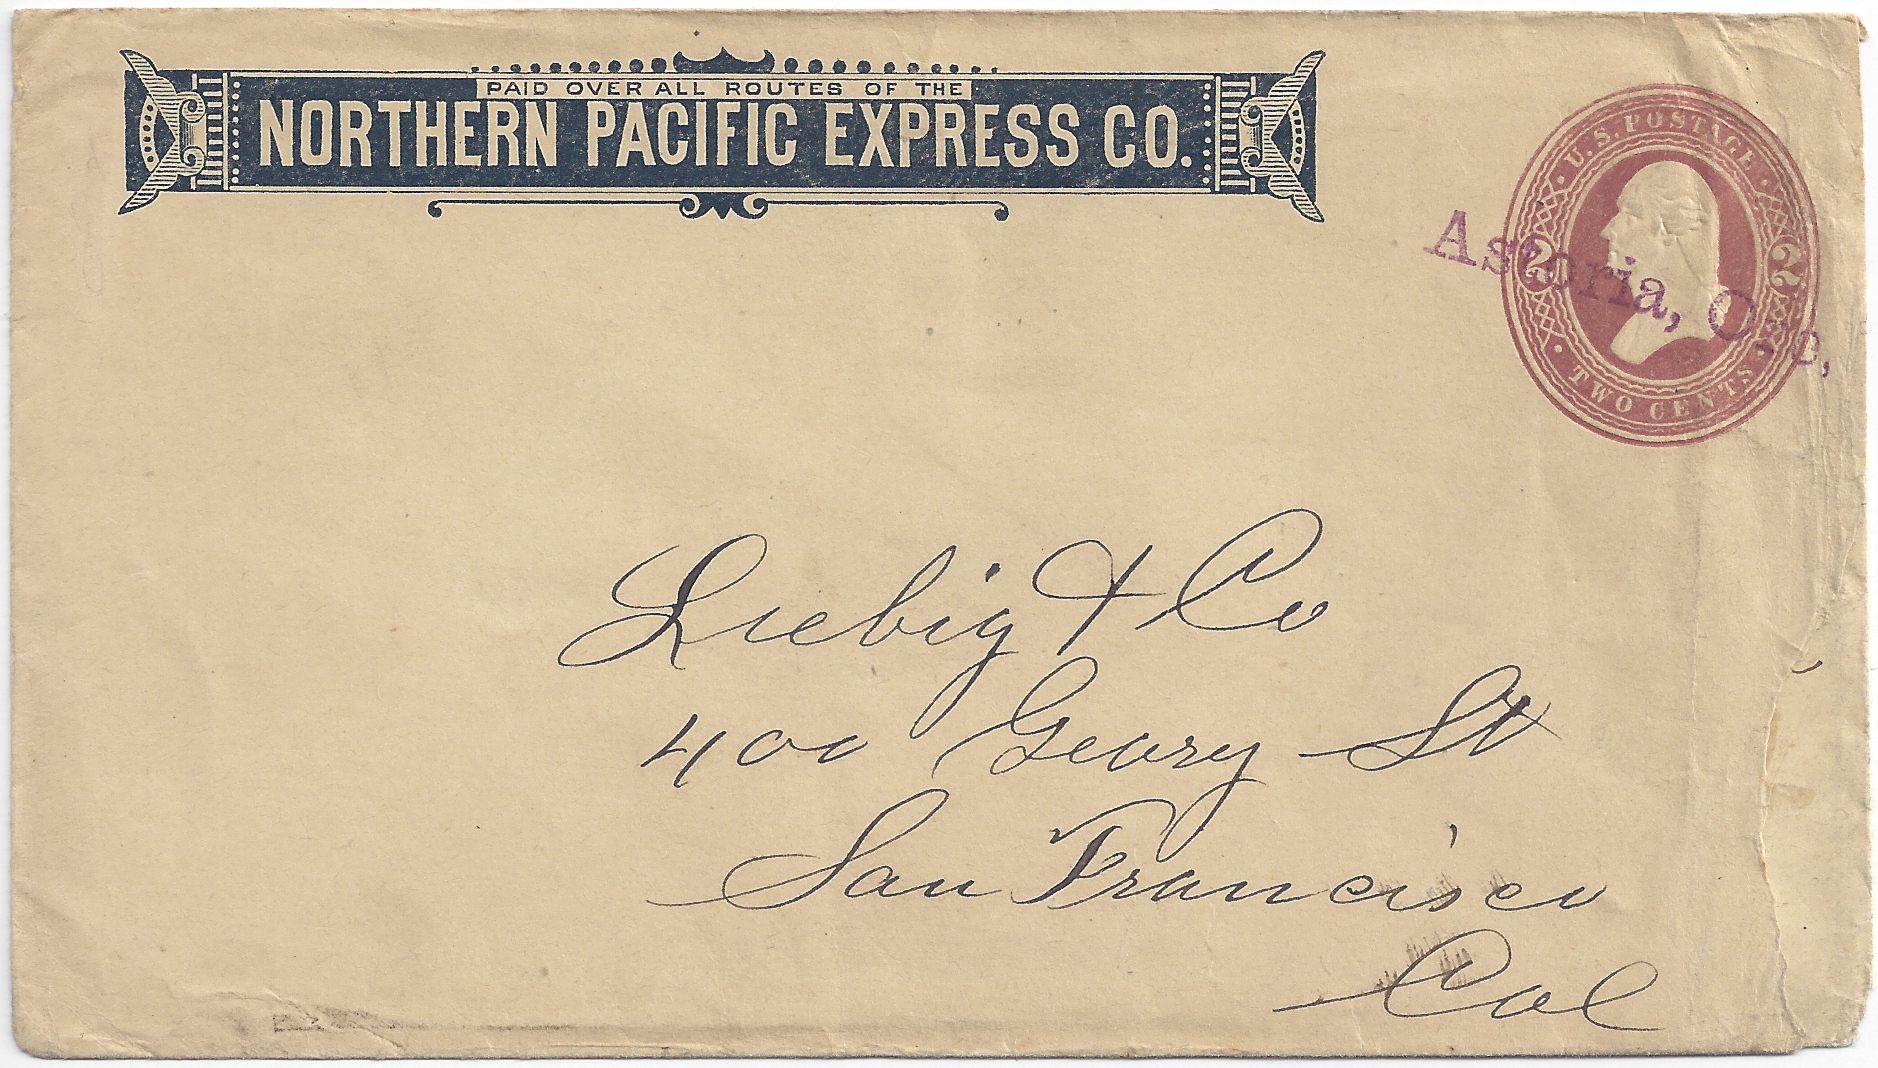 PAID OVER ALL ROUTES OF THE
NORTHERN PACIFIC EXPRESS CO.
U.S. POSTAGE
2 2
TWO CENTS
Astoria, Ore,
Liebig & Co
400 Geary St
San Francisco
Cal